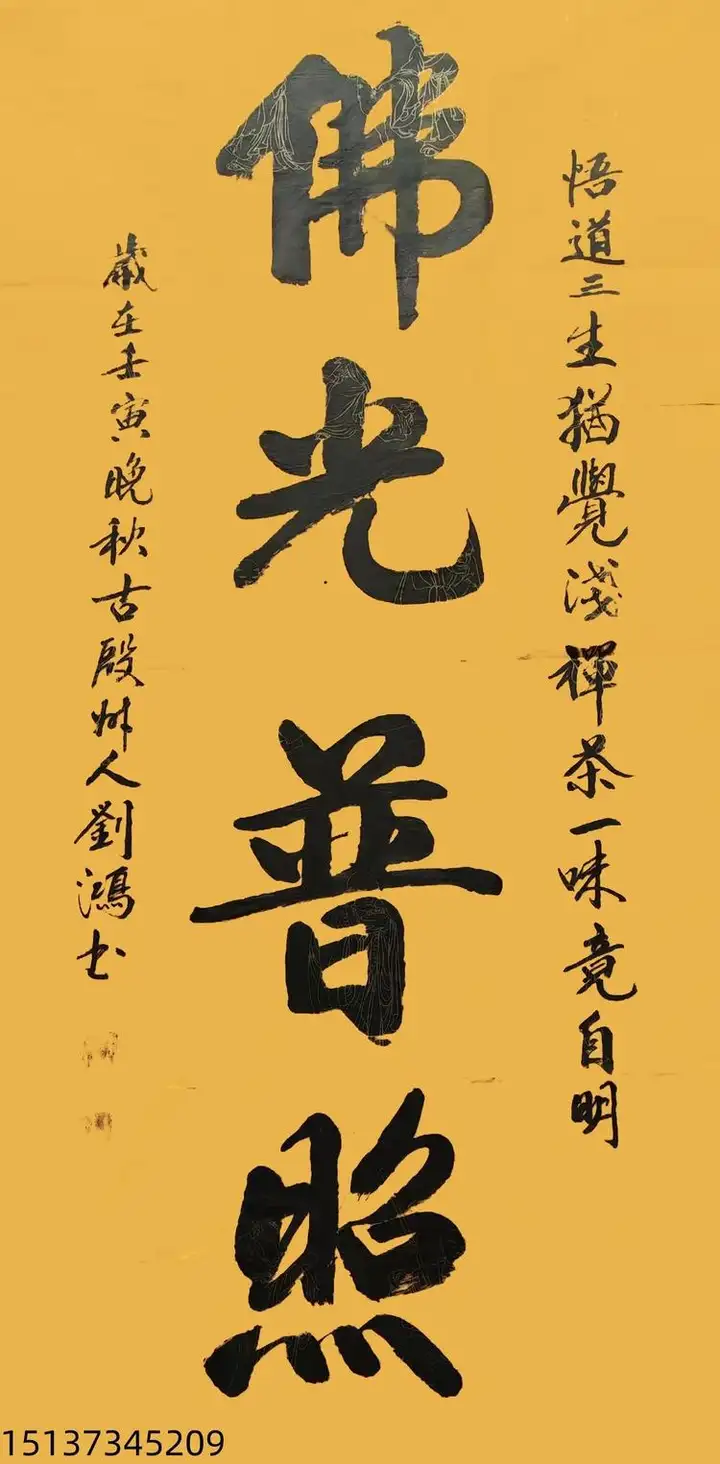 悟道三生猶覺淺禪茶一味竟自明
佛光普照
歲在壬寅晚秋古殷州人劉鴻书
15137345209